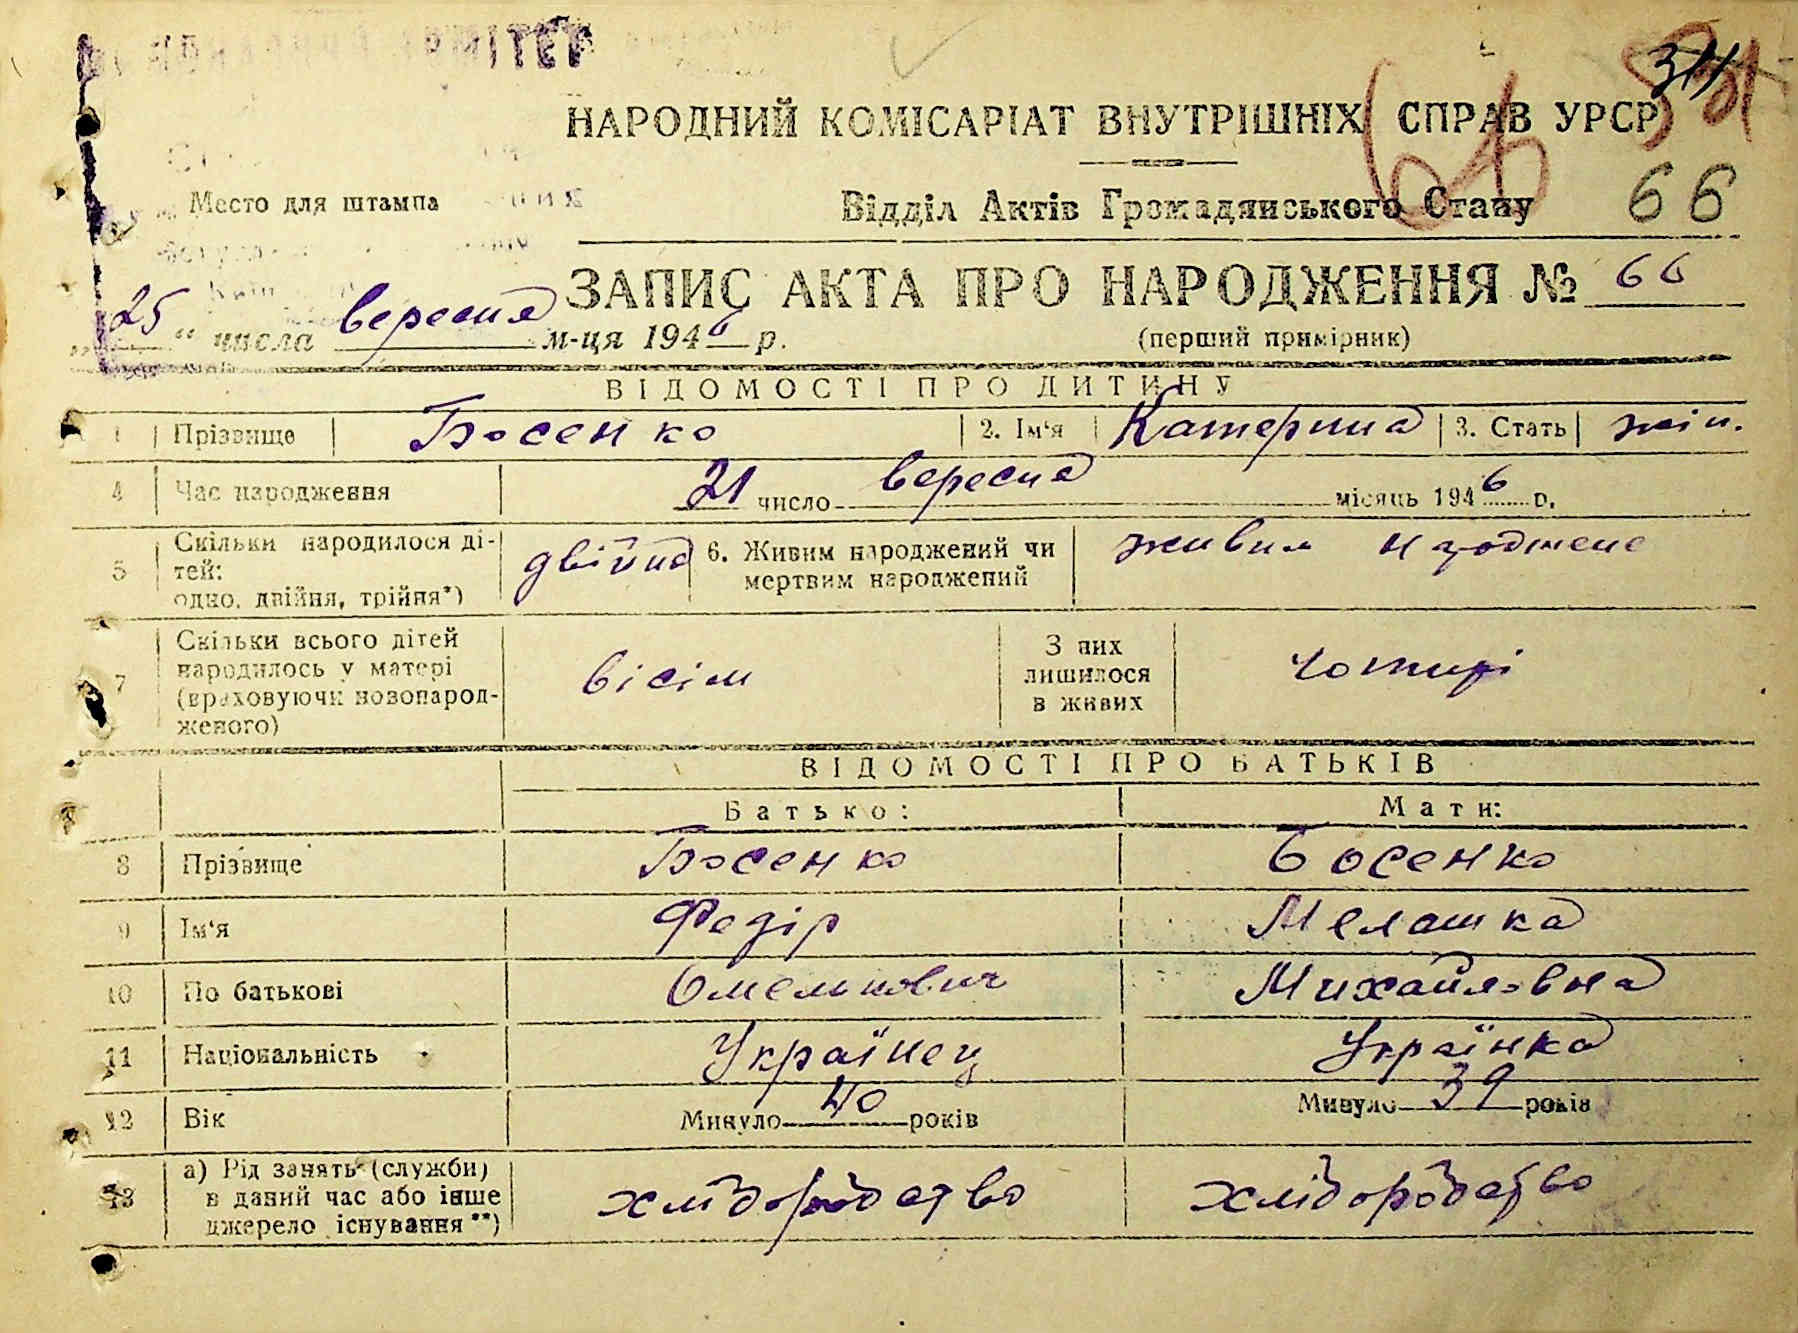 ТЕТ
311
НАРОДНИЙ КОМІСАРІАТ ВНУТРІШНІХ СПРАВ УРСР
66
Место для штампа
Відділ Актів Громадянського Стану 66
ЗАПИС АКТА ПРО НАРОДЖЕННЯ № 66
„25“ числа вересня м-ця 1946 р.
(перший примірник)
ВІДОМОСТІ ПРО ДИТИНУ
1 Прізвище Босенко 2. Ім'я Катерина 3. Стать жін.
4 Час народження 21 число вересня місяць 1946 р.
5 Скільки народилося ді-
тей:
одно, двійня, трійня*) двійня 6. Живим народжений чи
мертвим народжений живим народжене
7 Скільки всього дітей
народилось у матері
(враховуючи новонарод-
женого) вісім З них
лишилося
в живих чотирі
ВІДОМОСТІ ПРО БАТЬКІВ
Батько: Мати:
8 Прізвище Босенко Босенко
9 Ім'я Федір Мелашка
10 По батькові Омелькович Михайловна
11 Національність Українец Українка
12 Вік Минуло 40 років Минуло 39 років
13 а) Рід занять (служби)
в даний час або інше
джерело існування**) хліборобство хліборобство